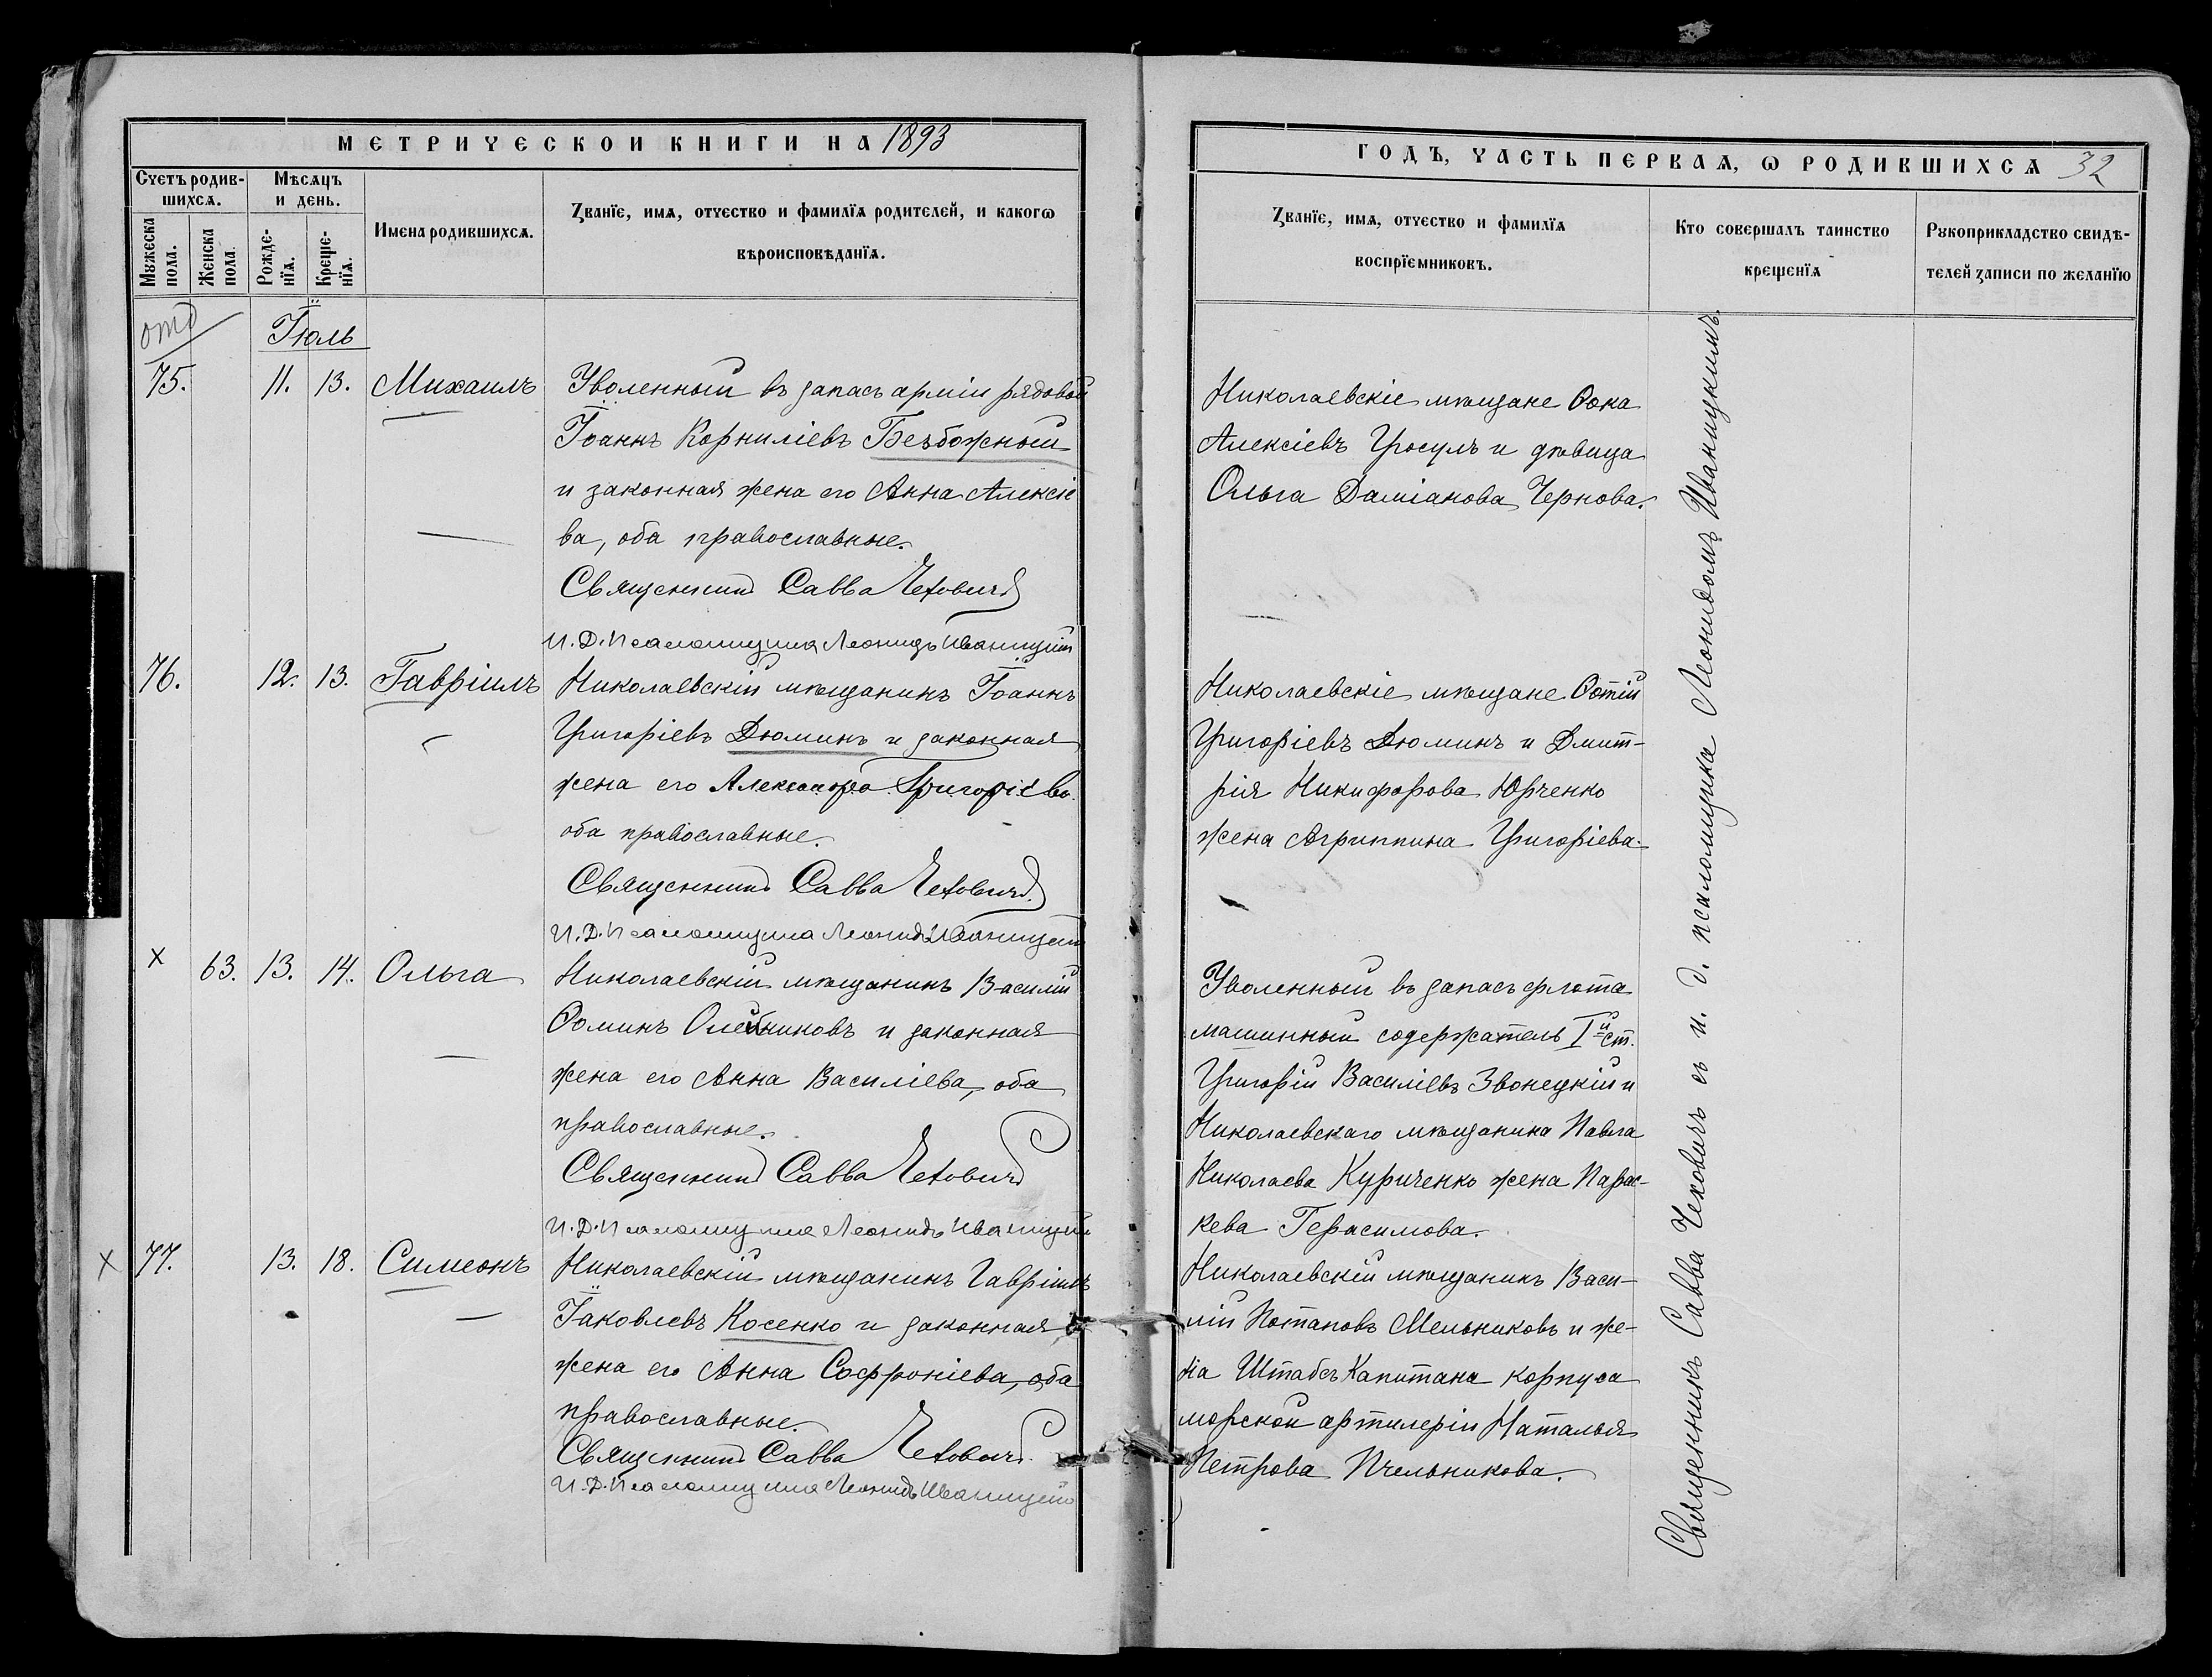 МЕТРИЧЕСКОЙ КНИГИ НА 1893
Счетъ родив-
шихсѧ.
Мꙋжеска
пола.
Женска
пола.
Мѣсѧцъ
и день.
Рожде-
нїѧ.
Креще-
нїѧ.
Имена родившихсѧ.
Званїе, имѧ, отчество и фамилїѧ родителей, и какогѡ
вѣроисповѣданїѧ.
отд
Іюль
75. 11. 13. Михаилъ
Уволенный въ запасъ арміи рядовой
Іоаннъ Корниліевъ Безбожный
и законная жена его Анна Алексіе
ва, оба православные.
Священникъ Савва Чеховичъ
И. Д. Псаломщика Леонидъ Иваницкій
76. 12. 13. Гавріилъ
Николаевскій мѣщанинъ Іоаннъ
Григоріевъ Дюминъ и законная
жена его Александра Григоріева
оба православные.
Священникъ Савва Чеховичъ
И. Д. Псаломщика Леонидъ Иваницкій
х 63. 13. 14. Ольга
Николаевскій мѣщанинъ Василій
Ѳоминъ и законная
жена его Анна Василіева, оба
православные.
Священникъ Савва Чеховичъ
И. Д. Псаломщика Леонидъ Иваницкій
х 77. 13. 18. Симеонъ
Николаевскій мѣщанинъ Гавріилъ
Іаковлевъ Косенко и законная
жена его Анна Софроніева, оба
православные.
Священникъ Савва Чеховичъ
И. Д. Псаломщика Леонидъ Иваницкій
ГОДЪ, ЧАСТЬ ПЕРВАѦ, Ѡ РОДИВШИХСѦ 32
Званїе, имѧ, отчество и фамилїѧ
воспрїемниковъ.
Кто совершалъ таинство
крещенїѧ
Рꙋкоприкладство свидѣ-
телей записи по желанїю
Николаевскіе мѣщане Ѳока
Алексіевъ Гросулъ и дѣвица
Ольга Даміанова Чернова.
Николаевскіе мѣщане Ѳотій
Григоріевъ Дюминъ и Димит-
рія Никифорова Юрченко
жена Агриппина Григоріева.
Уволенный въ запасъ флота
машинный содержатель I й ст.
Григорій Василіевъ Звонецкій и
Николаевскаго мѣщанина Павла
Николаева Куриченко жена Парас-
кева Герасимова.
Николаевскій мѣщанинъ Васи-
лій Потаповъ Мельниковъ и же-
на Штабсъ Капитана корпуса
морской артилеріи Наталья
Петрова Пчельникова.
Священникъ Савва Чеховичъ съ и. д. псаломщика Леонидомъ Иваницкимъ.